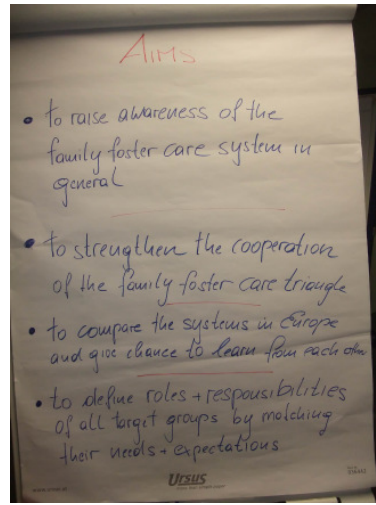 AIMS
• to raise awareness of the
family foster care system in
general
• to strengthen the cooperation
of the family foster care triangle
• to compare the systems in Europe
and give chance to learn from each other
• to define roles + responsibilities
of all target groups by matching
their needs + expectations
Ursus